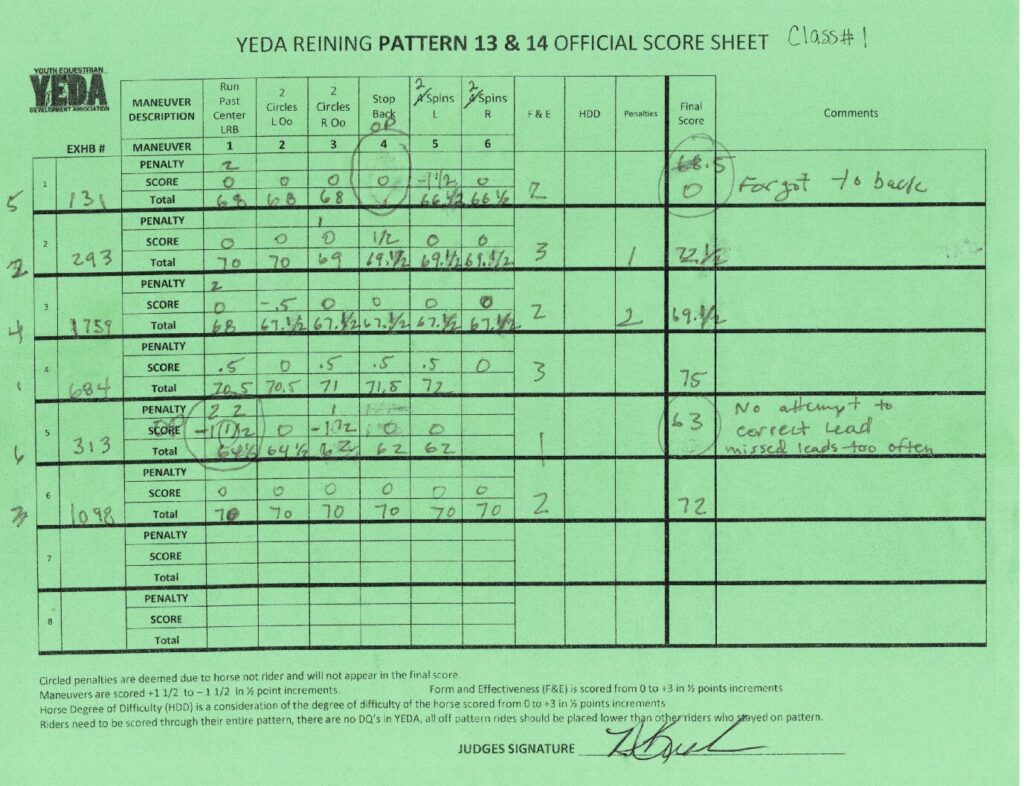 YEDA REINING PATTERN 13 & 14 OFFICIAL SCORE SHEET Class# 1
YOUTH EQUESTRIAN
YEDA
DEVELOPMENT ASSOCIATION
EXHB # MANEUVER DESCRIPTION Run Past Center LRB 2 Circles L Oo 2 Circles R Oo Stop Back 2 4 Spins L 2 4 Spins R F & E HDD Penalties Final Score Comments
OP
MANEUVER 1 2 3 4 5 6
1 PENALTY 2 68.5
SCORE 0 0 0 0 -1 1/2 0 2 0 Forgot to back
5 131 Total 68 68 68 66 1/2 66 1/2
2 PENALTY 1
SCORE 0 0 0 1/2 0 0 3
2 293 Total 70 70 69 69.1/2 69.1/2 69.1/2 1 72.1/2
3 PENALTY 2
SCORE 0 -.5 0 0 0 0 2 2 69.1/2
4 1759 Total 68 67.1/2 67.1/2 67.1/2 67.1/2 67.1/2
4 PENALTY
SCORE .5 0 .5 .5 .5 0 3
1 684 Total 70.5 70.5 71 71.5 72 75
5 PENALTY 2 2 1 63 No attempt to
OP SCORE -1 1/2 0 -1 1/2 0 0 1 correct lead
6 313 Total 64 1/2 64 1/2 62 62 62 missed leads too often
6 PENALTY
SCORE 0 0 0 0 0 0 2 72
3 1098 Total 70 70 70 70 70 70
7 PENALTY
SCORE
Total
8 PENALTY
SCORE
Total
Circled penalties are deemed due to horse not rider and will not appear in the final score.
Maneuvers are scored +1 1/2 to – 1 1/2 in ½ point increments. Form and Effectiveness (F&E) is scored from 0 to +3 in ½ points increments
Horse Degree of Difficulty (HDD) is a consideration of the degree of difficulty of the horse scored from 0 to +3 in ½ points increments
Riders need to be scored through their entire pattern, there are no DQ's in YEDA, all off pattern rides should be placed lower than other riders who stayed on pattern.
JUDGES SIGNATURE